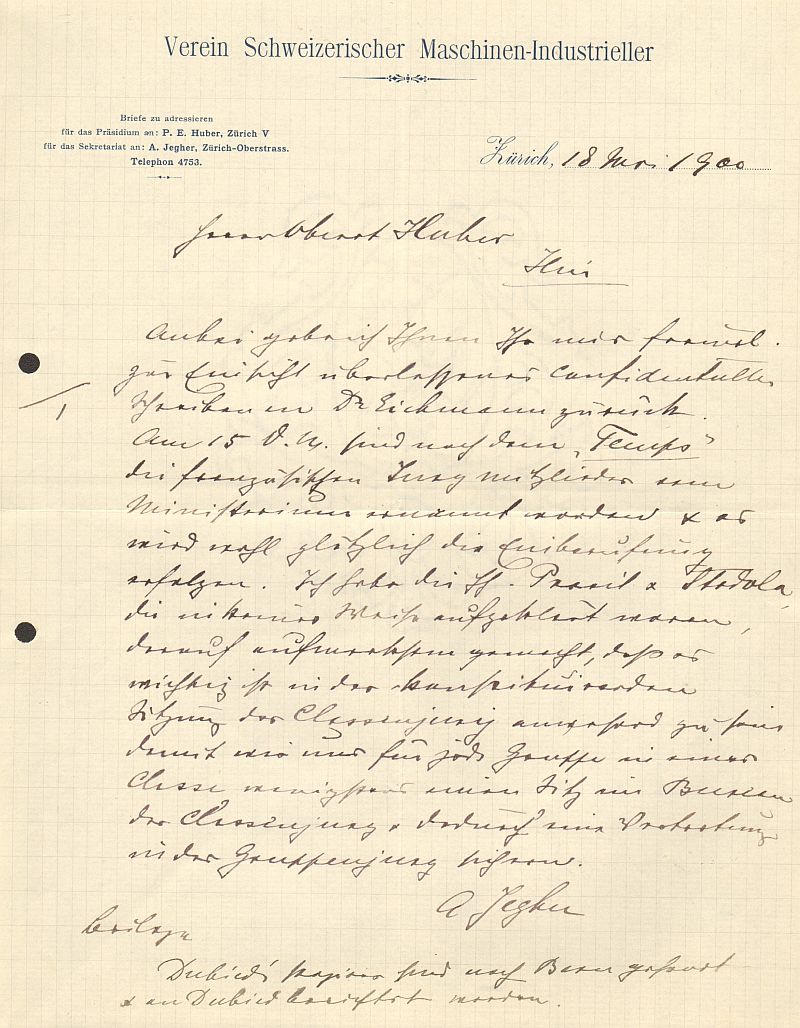 Verein Schweizerischer Maschinen-Industrieller
Briefe zu adressieren
für das Präsidium an: P. E. Huber, Zürich V
für das Sekretariat an: A. Jegher, Zürich-Oberstrass.
Telephon 4753.
Zürich, 18 Mai 1900
Herrn Oberst Huber
Anbei gebe ich Ihnen Ihr mir freundl.
zur Einsicht überlassenes confidentielles
Schreiben an Dr Eichmann zurück.
Am 15 d. M. sind nach dem "Temps"
die französischen Jurymitglieder vom
Ministerium ernannt worden & es
wird wohl plötzlich die Einberufung
erfolgen. Ich habe die HH. Prasil & Stodola,
die in keiner Weise aufgeklärt waren,
darauf aufmerksam gemacht, dass es
wichtig ist in der konstituirenden
Sitzung der Classenjury anwesend zu sein
damit wir uns für jede Gruppe in einer
Classe wenigstens einen Sitz im Bureau
der Classenjury & dadurch eine Vertretung
in der Gruppenjury sichern.
A Jegher
Beilage
Dubied's papiere sind nach Bern gesandt
& an Dubied berichtet worden.